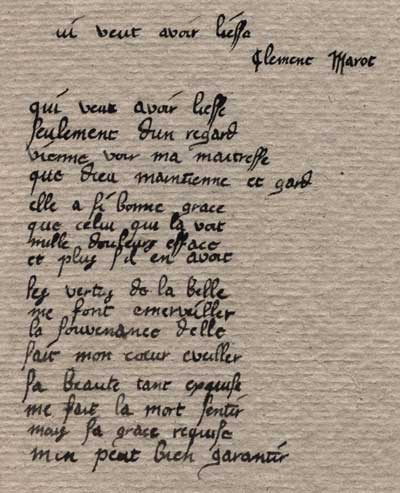 ui veut avoir liesse
Clement Marot
qui veut avoir liesse
seulement dun regard
vienne voir ma maitresse
que dieu maintienne et gard
elle a si bonne grace
que celui qui la voit
mille douleurs efface
et plus s'il en avoit
les vertus de la belle
me font emerveiller
la souvenance delle
fait mon cœur eveiller
sa beaute tant exquise
me fait la mort sentir
mays sa grace requise
men peut bien garantir